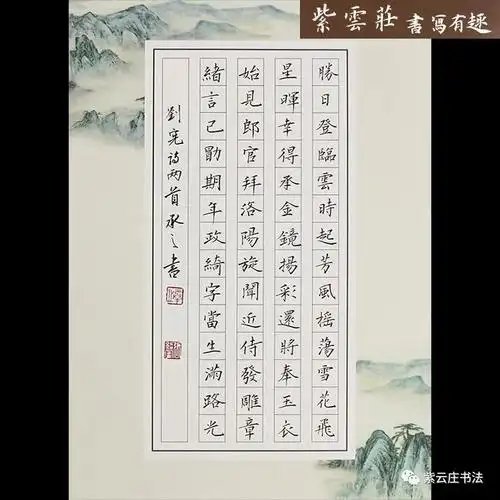 紫雲莊 書寫有趣
勝日登臨雲時起芳風搖蕩雪花飛
星暉幸得承金鏡揚彩還將奉玉衣
始見郎官拜洛陽旋聞近侍發雕章
緒言已勖期年政綺字當生滿路光
劉憲詩兩首承之書
紫云庄书法